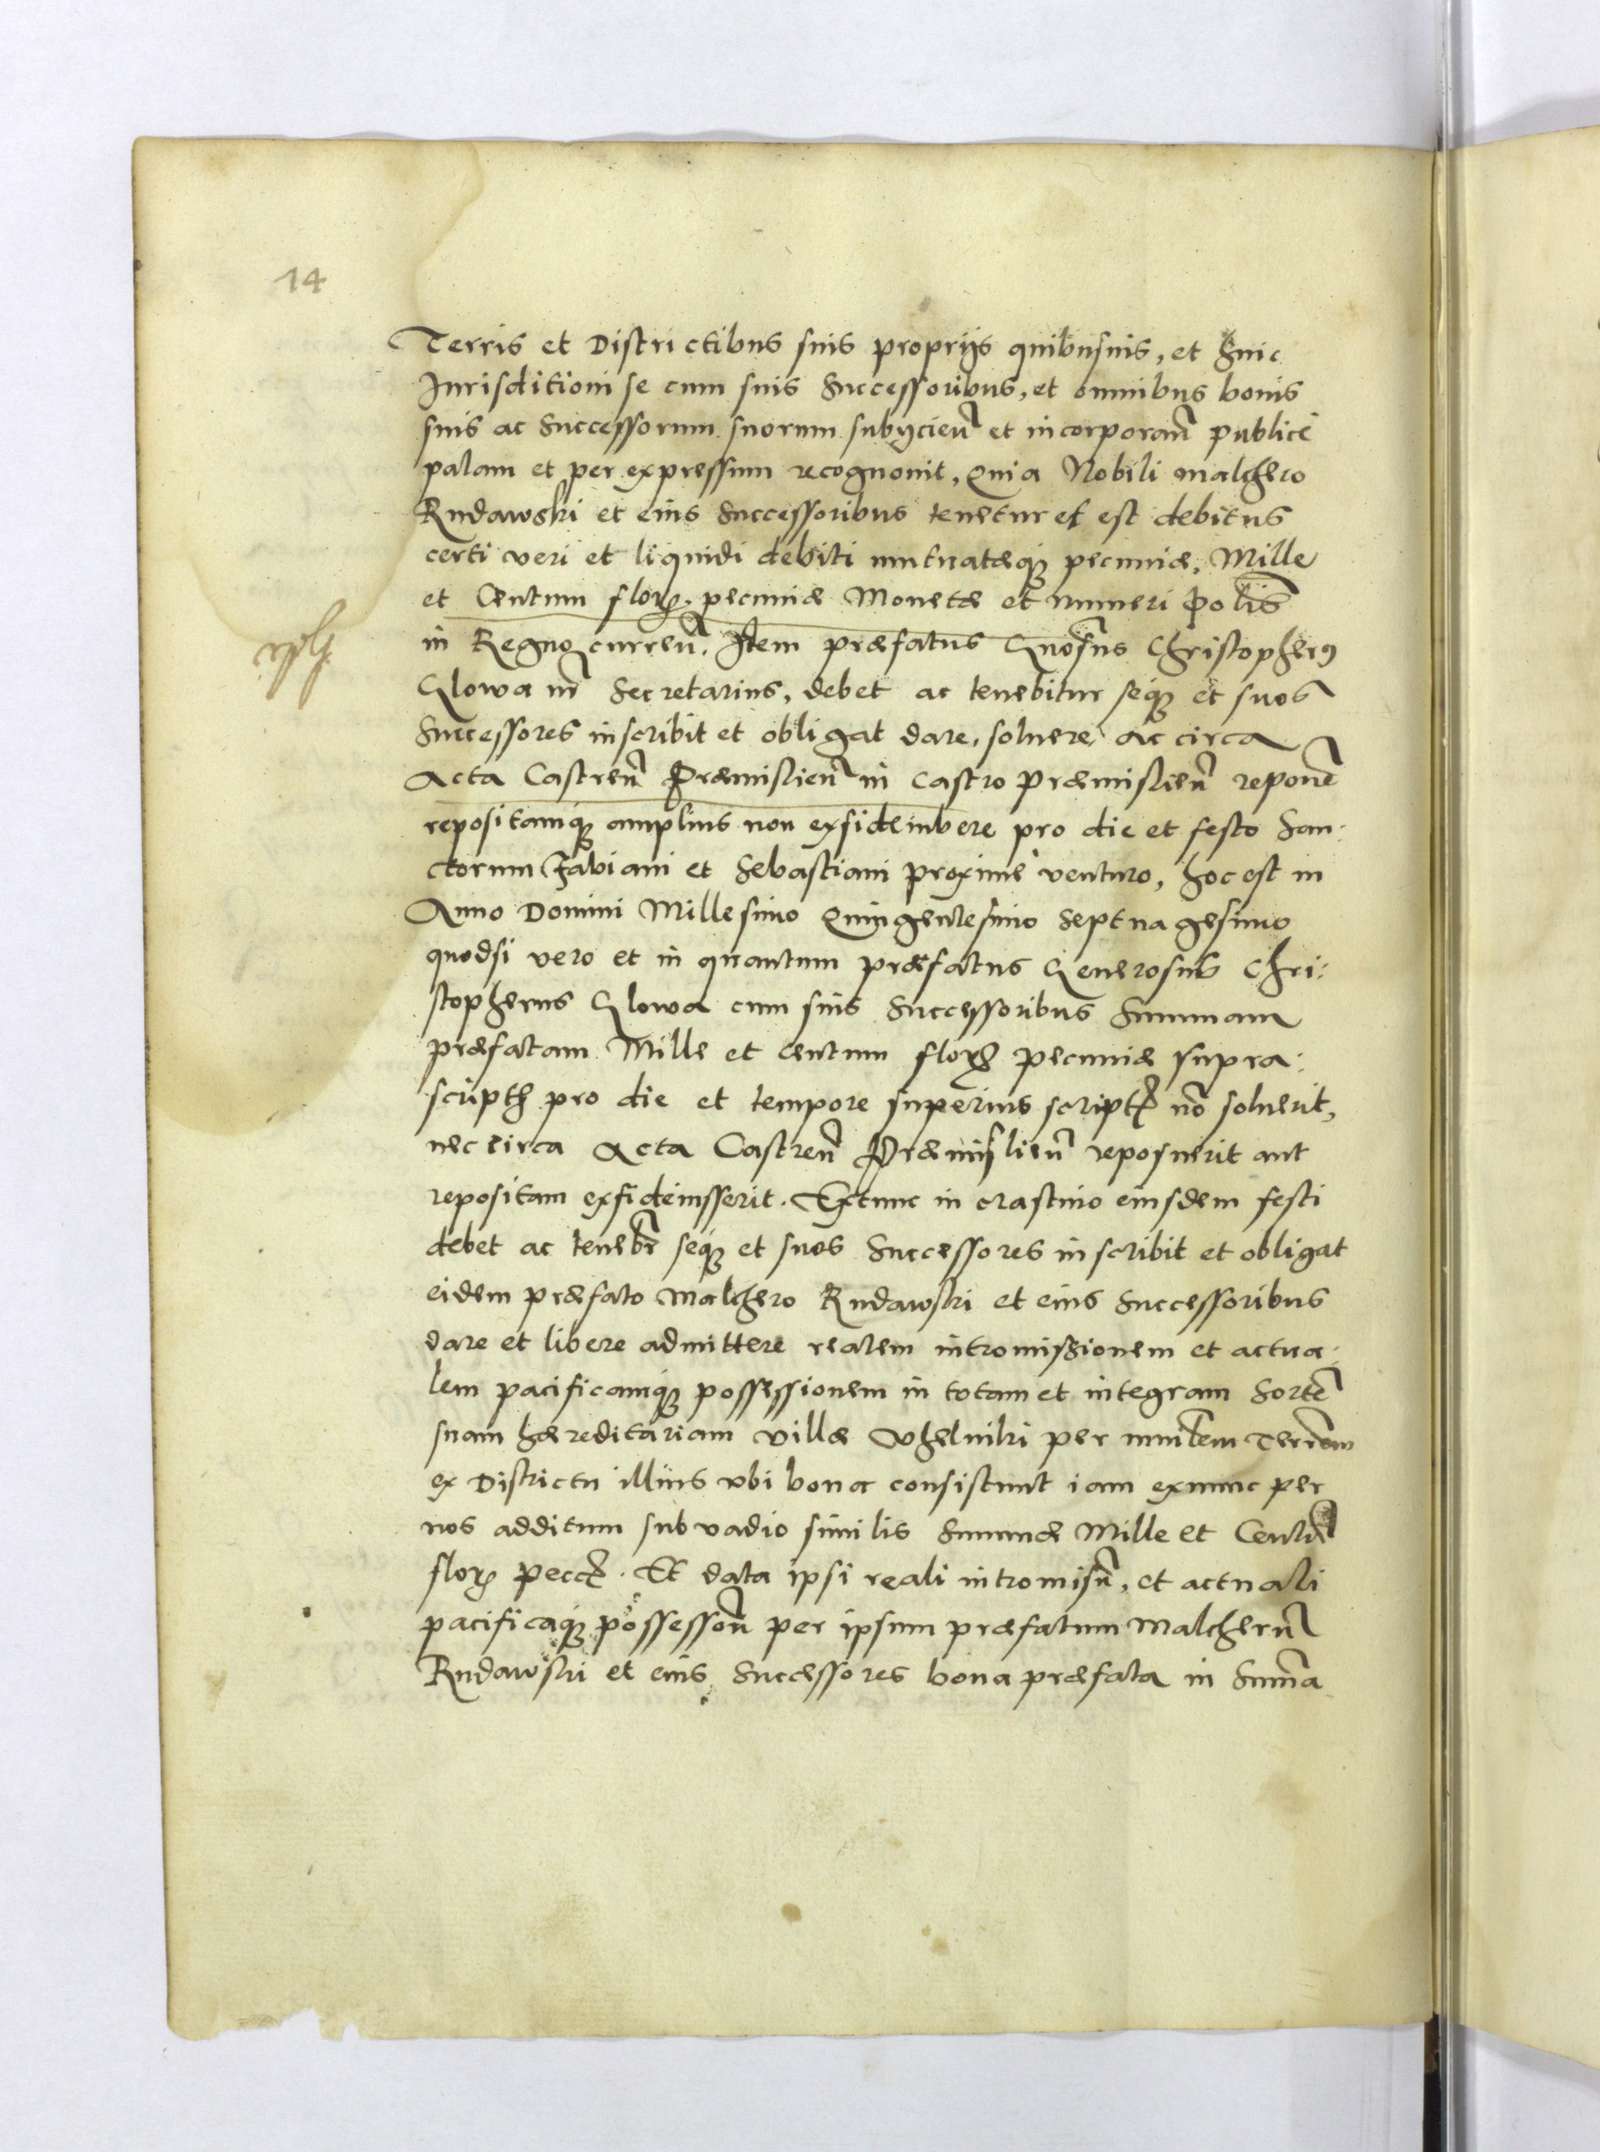 14
Terris et Districtibus suis proprijs quibusuis, et huic
Jurisditioni se cum suis Successoribus, et omnibus bonis
suis ac Successorum suorum subÿcieñ et incorporañ publice
palam et per expressum recognouit, Quia Nobili Malchero
Rudawski et eius Successoribus tenetur et est debitus
certi veri et liquidi debiti mutuatæque pecuniæ, Mille
et Centum floꝝ. pecuniæ Monetæ et numeri Polis̃
in Regno curreñ. Item præfatus Gnosus Christopherꝰ
Glowa nr̃ Secretarius, debet ac tenebitur seque et suos
Successores inscribit et obligat dare, soluere, ac circa
Acta Castreñ Præmislieñ in Castro Præmislieñ reponẽ
repositamque amplius non exfideiubere pro die et festo San:
ctorum Fabiani et Sebastiani proxime venturo, hoc est in
Anno Domini Millesimo Quingentesimo Septuagesimo
quodsi vero et in quantum præfatus Generosus Chri:
stopherus Glowa cum suis Successoribus Summam
præfatam Mille et Centum floꝝ pecuniæ supra:
scriptæ pro die et tempore superius script̃ nõ soluerit,
nec circa Acta Castreñ Præmislieñ reposuerit aut
repositam exfideiusserit. Extunc in crastino eiusdem festi
debet ac tenebr̃ seque et suos Successores inscribit et obligat
eidem præfato Malchero Rudawski et eius Successoribus
dare et libere admittere realem intromissionem et actua:
lem pacificamque possessionem in totam et integram Sortẽ
suam hæreditariam villæ Uhelniki per mintẽm Terrẽm
ex Districtu illius vbi bona consistunt iam exnunc per
nos additum sub vadio similis Summæ Mille et Centũ
floꝝ pecc̃. Et data ipsi reali intromisñ, et actuali
pacificaque possessoñ per ipsum præfatum Malcherũ
Rudawski et eius Successores bona præfata in Sum̃a